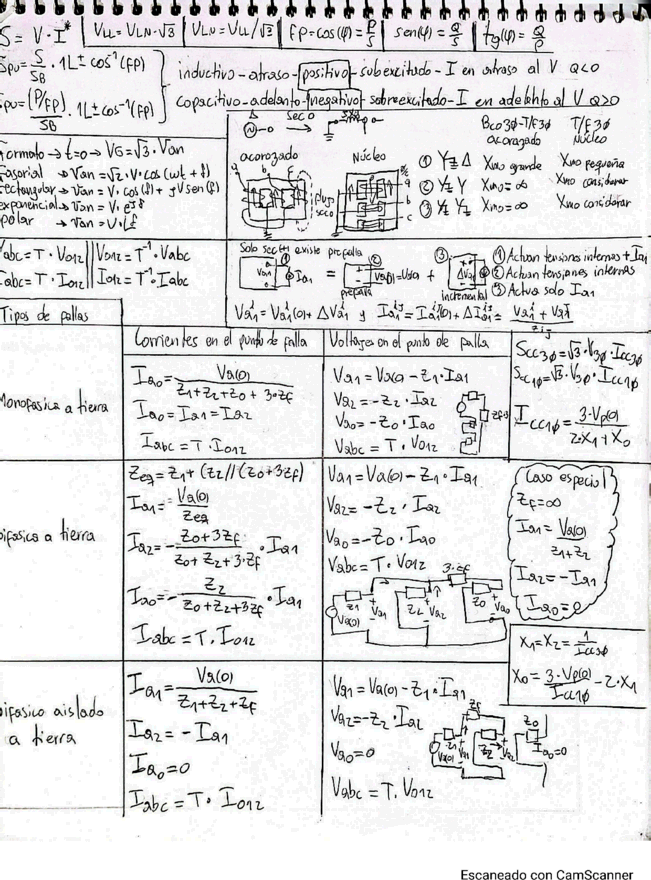 S = V · I*
VLL = VLN·√3
VLN = VLL/√3
FP = cos(φ) = P/S
sen(φ) = Q/S
tg(φ) = Q/P
Spu = S/SB · 1∟± cos⁻¹(FP)
Spu = (P/FP)/SB · 1∟± cos⁻¹(FP)
inductivo - atraso - positivo - subexcitado - I en atraso al V Q<0
capacitivo - adelanto - negativo - sobreexcitado - I en adelanto al V Q>0
Formato → t=0 → VG = √3 · Van
Fasorial → Van = √2 · V · cos(wt + f)
rectangular → Van = V · cos(f) + jV sen(f)
exponencial → Van = V · e^jf
polar → Van = V · ∟f
sec 0
acorazado
Núcleo
flujo sec 0
Bco3φ - T/F3φ acorazado
T/F 3φ núcleo
① Y⏚ Δ Xmo grande Xmo pequeña
② Y⏚ Y Xmo = ∞ Xmo considerar
③ Y⏚ Y⏚ Xmo = ∞ Xmo considerar
Vabc = T · V012 || V012 = T⁻¹ · Vabc
Iabc = T · I012 || I012 = T⁻¹ · Iabc
Solo sec (+) existe prefalla
prefalla
incremental
① Actuan tensiones internas + Ia1
② Actuan tensiones internas
③ Actua solo Ia1
Tipos de fallas
Corrientes en el punto de falla
Voltajes en el punto de falla
Monofasica a tierra
Ia0 = Va(0) / (Z1+Z2+Z0 + 3·Zf)
Ia0 = Ia1 = Ia2
Iabc = T · I012
Va1 = Va(0) - Z1 · Ia1
Va2 = -Z2 · Ia2
Va0 = -Z0 · Ia0
Vabc = T · V012
Scc3φ = √3 · V3φ · Icc3φ
Scc1φ = √3 · V3φ · Icc1φ
Icc1φ = 3·Vp(0) / (2·X1 + X0)
Bifasica a tierra
Zeq = Z1 + (Z2 // (Z0 + 3Zf))
Ia1 = Va(0) / Zeq
Ia2 = - (Z0+3Zf) / (Z0+Z2+3·Zf) · Ia1
Ia0 = - Z2 / (Z0+Z2+3Zf) · Ia1
Iabc = T · I012
Va1 = Va(0) - Z1 · Ia1
Va2 = -Z2 · Ia2
Va0 = -Z0 · Ia0
Vabc = T · V012
3·Zf
Caso especial
Zf = ∞
Ia1 = Va(0) / (Z1+Z2)
Ia2 = - Ia1
Ia0 = 0
X1 = X2 = 1 / Icc3φ
X0 = 3·Vp(0) / Icc1φ - 2·X1
Bifasico aislado a tierra
Ia1 = Va(0) / (Z1+Z2+Zf)
Ia2 = - Ia1
Ia0 = 0
Iabc = T · I012
Va1 = Va(0) - Z1 · Ia1
Va2 = -Z2 · Ia2
Va0 = 0
Vabc = T · V012
Ia0 = 0
Escaneado con CamScanner